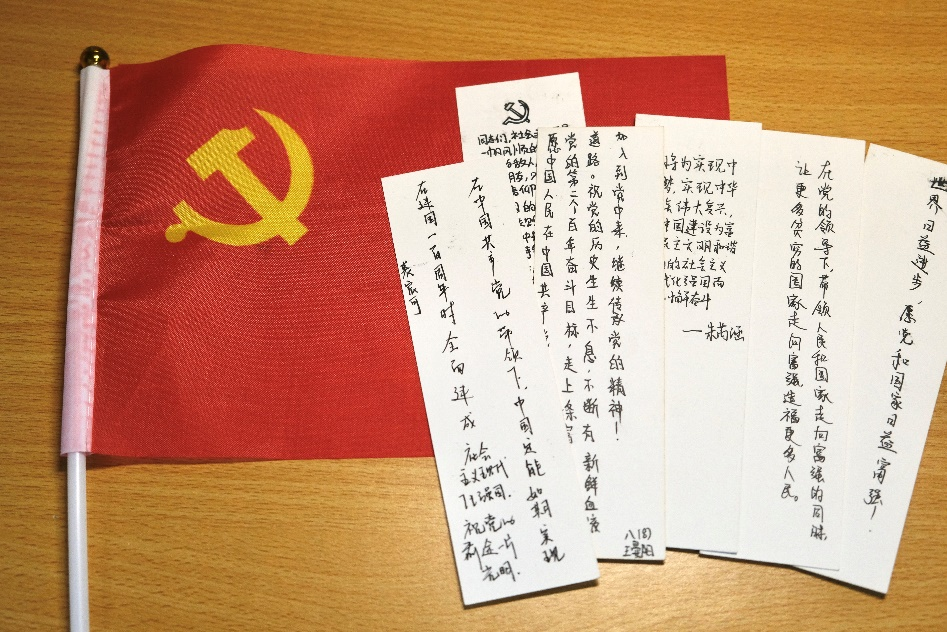 在中国共产党的带领下，中国定能如期实现
在建国一百周年时全面建成
社会
主义现代
化强国.
祝党的
前途一片
光明.
同志们，社会
愿中国人民在中国共产
党的第二个百年奋斗目标，走上条
道路。祝党的历史生生不息，不断有新鲜血液
加入到党中来，继续传承党的精神！
八(8)
将为实现中
梦，实现中华
伟大复兴，
国建设为富
主文明和谐
的社会主义
代化强国而
奋斗
—朱芮涵
在党的领导下，带领人民和国家走向富强的同时，
让更多贫穷的国家走向富强，造福更多人民。
世界日益进步，愿党和国家日益富强！